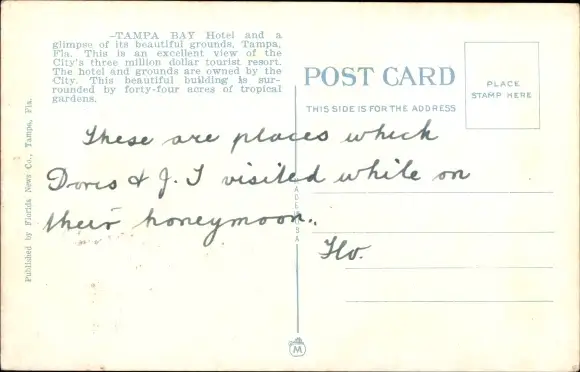 -TAMPA BAY Hotel and a
glimpse of its beautiful grounds, Tampa,
Fla. This is an excellent view of the
City's three million dollar tourist resort.
The hotel and grounds are owned by the
City. This beautiful building is sur-
rounded by forty-four acres of tropical
gardens.
POST CARD
THIS SIDE IS FOR THE ADDRESS
PLACE
STAMP HERE
These are places which
Doris & J. T visited while on
their honeymoon.
Flo.
Published by Florida News Co., Tampa, Fla.
M